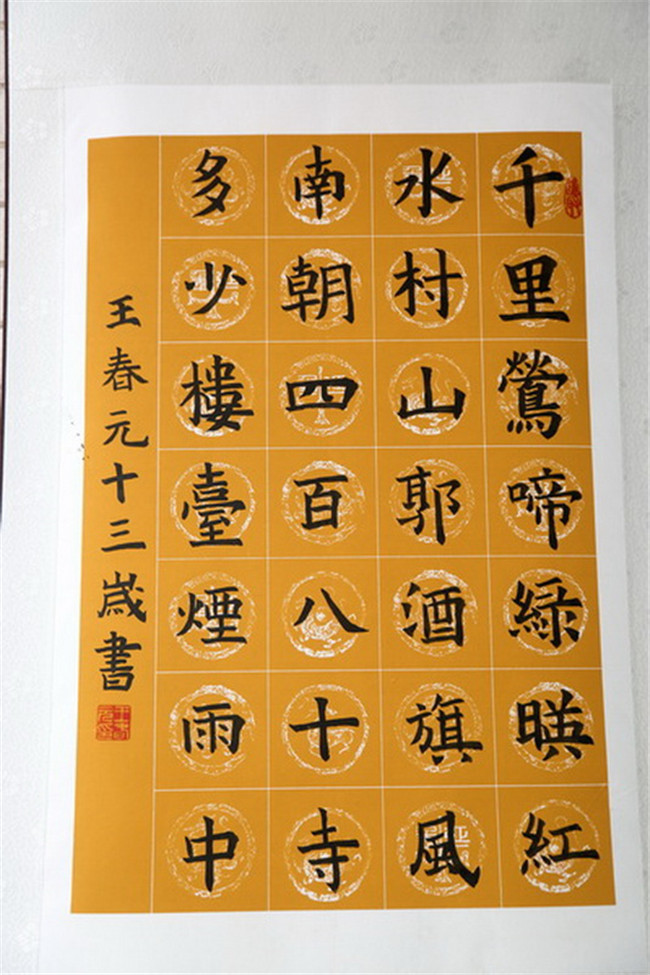 千里鶯啼綠暎紅
水村山郭酒旗風
南朝四百八十寺
多少樓臺煙雨中
王春元十三歲書